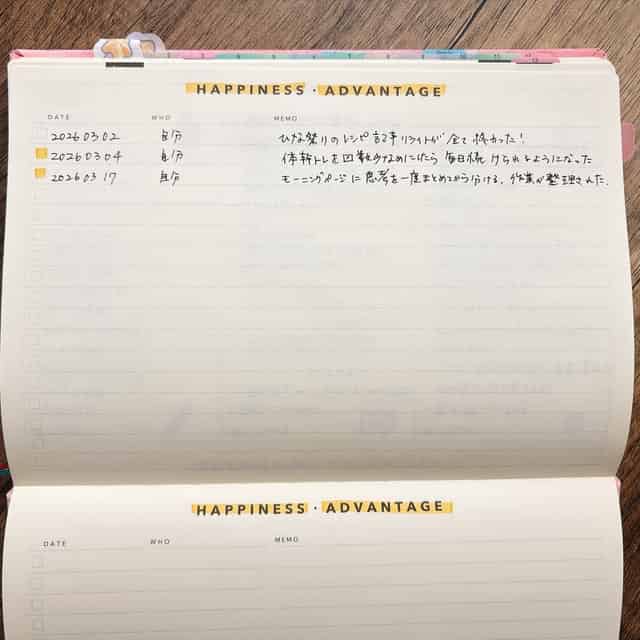 HAPPINESS · ADVANTAGE
DATE WHO MEMO
20260302 自分 ひな祭りのレシピ記事リライトが全て終わった!
20260304 自分 体幹トレを回数少なめにしたら毎日続けられるようになった
20260317 自分 モーニングページに思考を一度まとめてから分ける。作業が整理された。
HAPPINESS · ADVANTAGE
DATE WHO MEMO